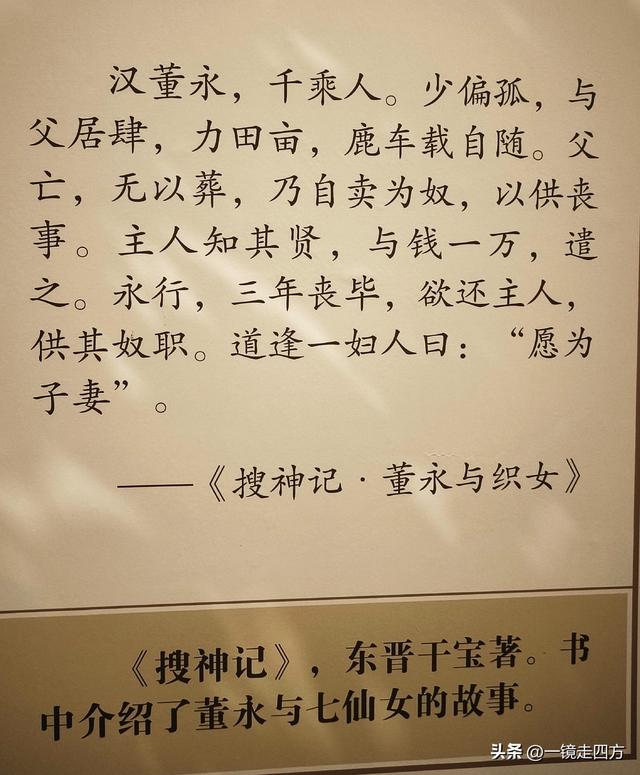 汉董永，千乘人。少偏孤，与
父居肆，力田亩，鹿车载自随。父
亡，无以葬，乃自卖为奴，以供丧
事。主人知其贤，与钱一万，遣
之。永行，三年丧毕，欲还主人，
供其奴职。道逢一妇人曰：“愿为
子妻”。
——《搜神记·董永与织女》
《搜神记》，东晋干宝著。书
中介绍了董永与七仙女的故事。
头条 @一镜走四方